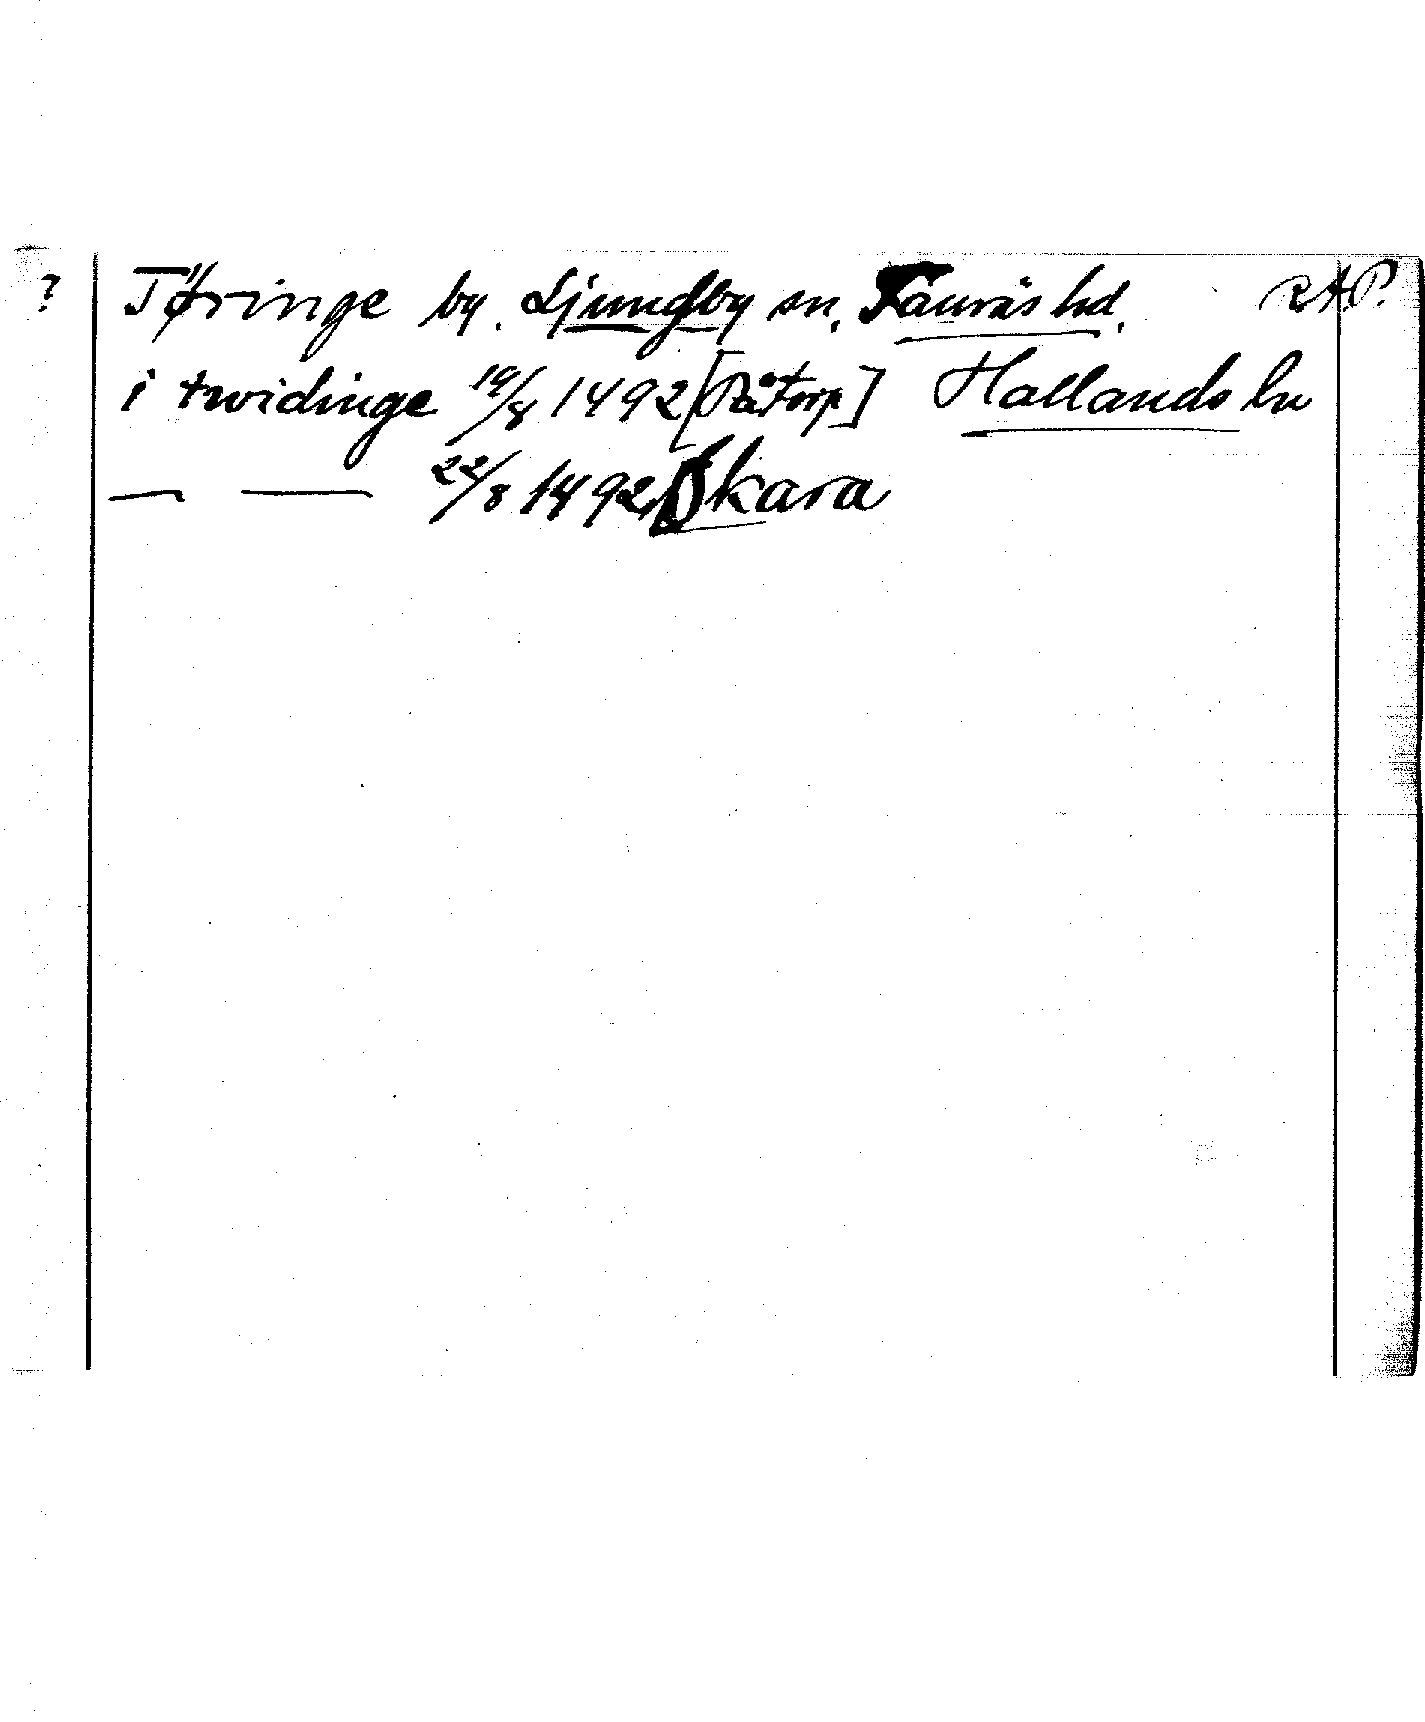 ? Töringe by. Ljungby sn, Fauräs hd. RAP.
i twidinge 19/8 1492 [Påtorp] Hallands ln
— — 22/8 1492, Skara